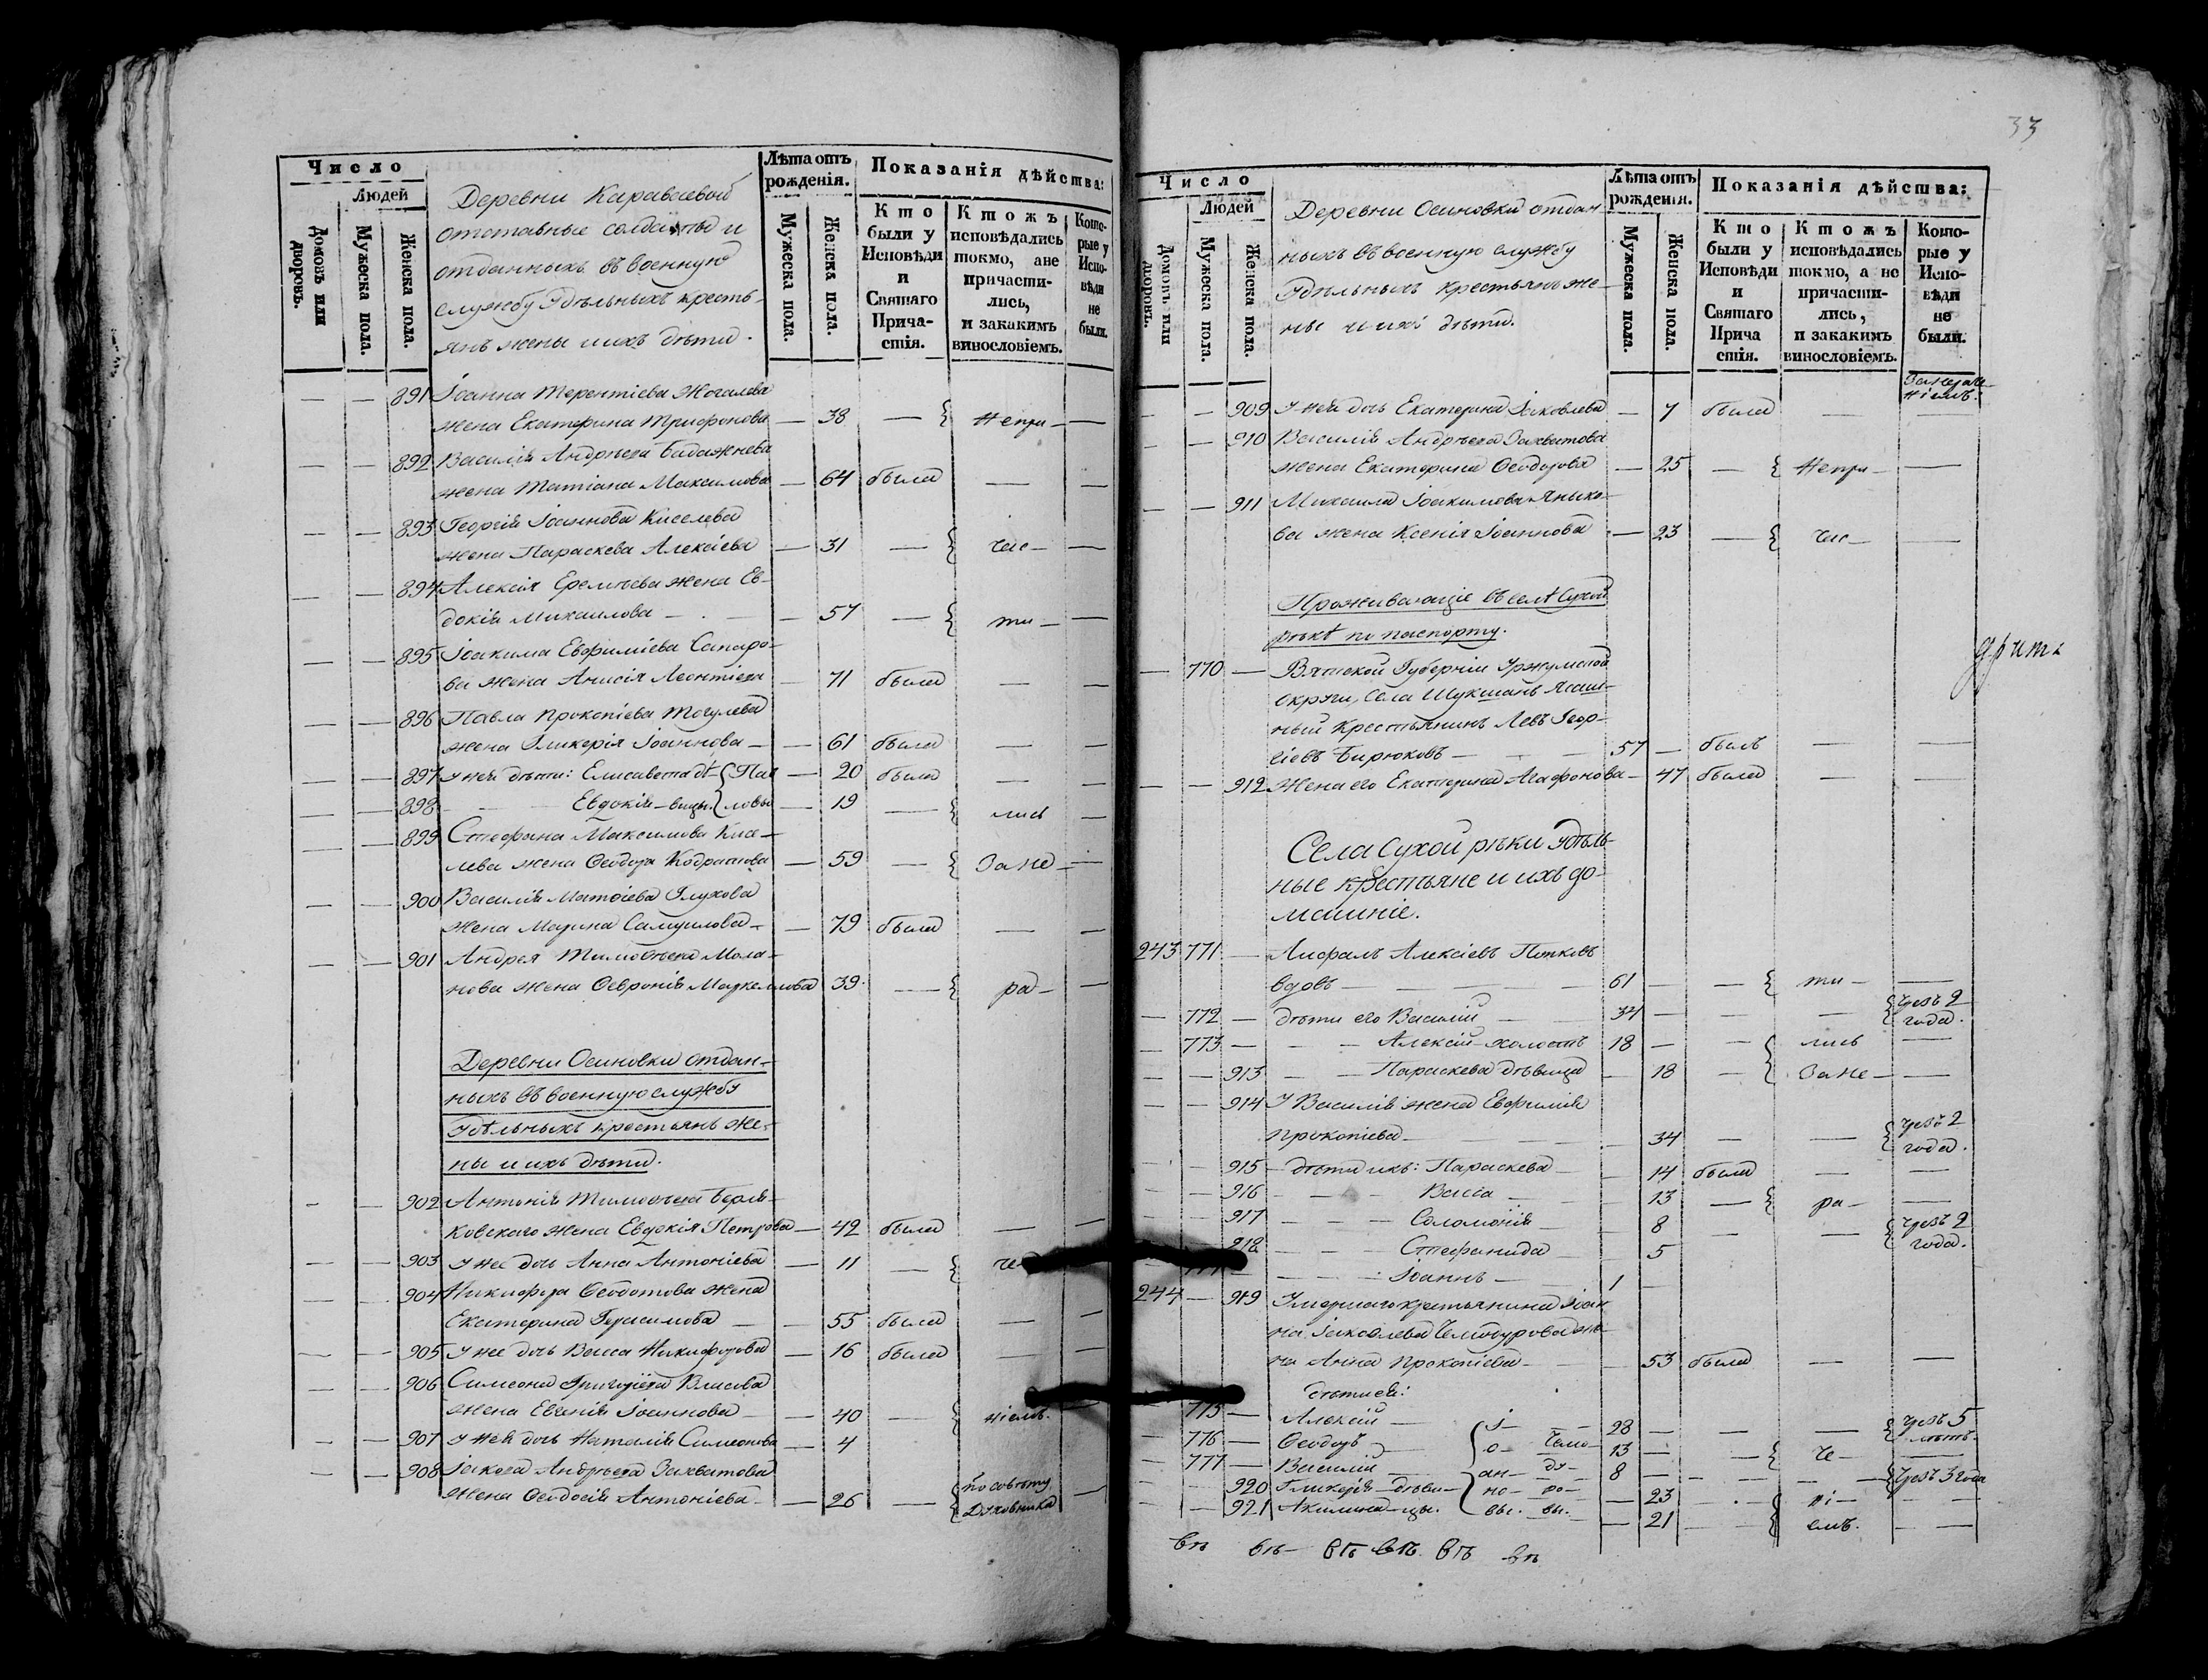 Число
Людей
Домовъ или дворовъ.
Мужеска пола.
Женска пола.
Деревни Караваевой
отставные солдаты и
отданныхъ въ военную
службу Удѣльныхъ кресть-
янъ жены и ихъ дѣти.
Лѣта отъ рожденія.
Мужеска пола.
Женска пола.
Показанія дѣйства:
Кто были у Исповѣди и Святаго Прича-стія.
Ктожъ исповѣдались токмо, ане причасти-лись, и закакимъ винословіемъ.
Кото-рые у Испо-вѣди не были.
— — 891 Іоанна Терентіева Жогалева
жена Екатерина Трифонова — 38 — { Непри — —
— — 892 Василія Андреева Бадажнева
жена Татіана Максимова — 64 была — —
— — 893 Георгія Іоаннова Киселева
жена Параскева Алексіева — 31 — { час — —
— — 894 Алексія Еремѣева жена Ев-
докія Михаилова — — 57 — { ти — —
— — 895 Іоакима Евфиміева Сапаро-
ва жена Анисія Леонтіева — 71 была — —
— — 896 Павла Прокопіева Тогулева
жена Гликерія Іоаннова — — 61 была — —
— — 897 У ней дѣти: Елисавета дѣ- { Пав — 20 была — —
— — 898 — Евдокія — вицы. { ловы — 19 — { лись —
— — 899 Стефана Максимова Кисе-
лева жена Ѳеодора Кодратова — 59 — { За не — —
— — 900 Василія Матѳіева Глухова
жена Марина Самуилова — — 79 была — —
— — 901 Андрея Тимоѳеева Мола-
нова жена Ѳевронія Маркеллова 39 — { ра — —
Деревни Осиновки отдан-
ныхъ въ военную службу
Удѣльныхъ крестьянъ же-
ны и ихъ дѣти.
— — 902 Антонія Тимоѳеева Берля-
ковскаго жена Евдокія Петрова — 42 была — —
— — 903 У нее дочь Анна Антоніева — 11 — { че
— — 904 Никифора Ѳеодотова жена
Екатерина Герасимова — — 55 была — —
— — 905 У нее дочь Васса Никифорова — 16 была — —
— — 906 Симеона Григоріева Власова
жена Евгенія Іоаннова — — 40 — { ніемъ. —
— — 907 У ней дочь Наталія Симеонова — 4
— — 908 Іакова Андреева Захватова
жена Ѳеодосія Антоніева — — 26 — { По совѣту Духовника —
33
Число
Людей
Домовъ или дворовъ.
Мужеска пола.
Женска пола.
Деревни Осиновки отдан
ныхъ въ военную службу
Удѣльныхъ крестьянъ же-
ны и ихъ дѣти.
Лѣта отъ рожденія.
Мужеска пола.
Женска пола.
Показанія дѣйства:
Кто были у Исповѣди и Святаго Прича стія.
Ктожъ исповѣдались токмо, а не причасти-лись, и закакимъ винословіемъ.
Кото-рые у Испо-вѣди не были.
— — 909 У ней дочь Екатерина Іаковлева — 7 была —
— — 910 Василія Андреева Захватова
жена Екатерина Ѳеодорова — 25 — { Непри — —
— — 911 Михаила Іоакимова Языко-
ва жена Ксенія Іоаннова — 23 — { час — —
Проживающіе въ селѣ Сухой
рѣкѣ по паспорту.
— 770 — Вятской Губерніи Уржумской
округи, села Шукшанъ Ясаш-
ный Крестьянинъ Левъ Геор-
гіевъ Бирюковъ — — 57 — былъ — —
— — 912 Жена его Екатерина Агафонова — 47 была — —
Села Сухой рѣки Удѣль-
ные крестьяне и ихъ до-
машніе.
243 771 — Алексіевъ
вдовъ — — 61 — — { ти — —
— 772 — дѣти его Василій — — 34 — — — { Чрезъ 2 года.
— 773 — — — Алексій холостъ 18 — — { лись —
— — 913 — — Параскева дѣвица — 18 — { За не — —
— — 914 У Василія жена Евфимія
Прокопіева — — 34 — — { чрезъ 2 года.
— — 915 — дѣти ихъ: Параскева — — 14 была — —
— — 916 — — Васса — — 13 — { ра — —
— — 917 — — Соломонія — — 8 — — { Чрезъ 2 года.
918 — — Стефанида — 5
— — Іоаннъ — 1 —
244 — 919 Умершаго крестьянина Іоан
на Іаковлева Чемодурова же
на Анна Прокопіева — — 53 была — —
дѣти ея:
775 — Алексій — { І — — 28 — — — { чрезъ 5 лѣтъ.
— 776 — Ѳеодоръ — { о — Чемо — 13 — — { че — —
— 777 — Василій { ан — ду — 8 — — — { Чрезъ 3 года
— — 920 Гликерія — дѣви — { но — ро — — 23 — { ні — —
— — 921 Акилина — цы. { вы. вы. — 21 — { емъ. — —